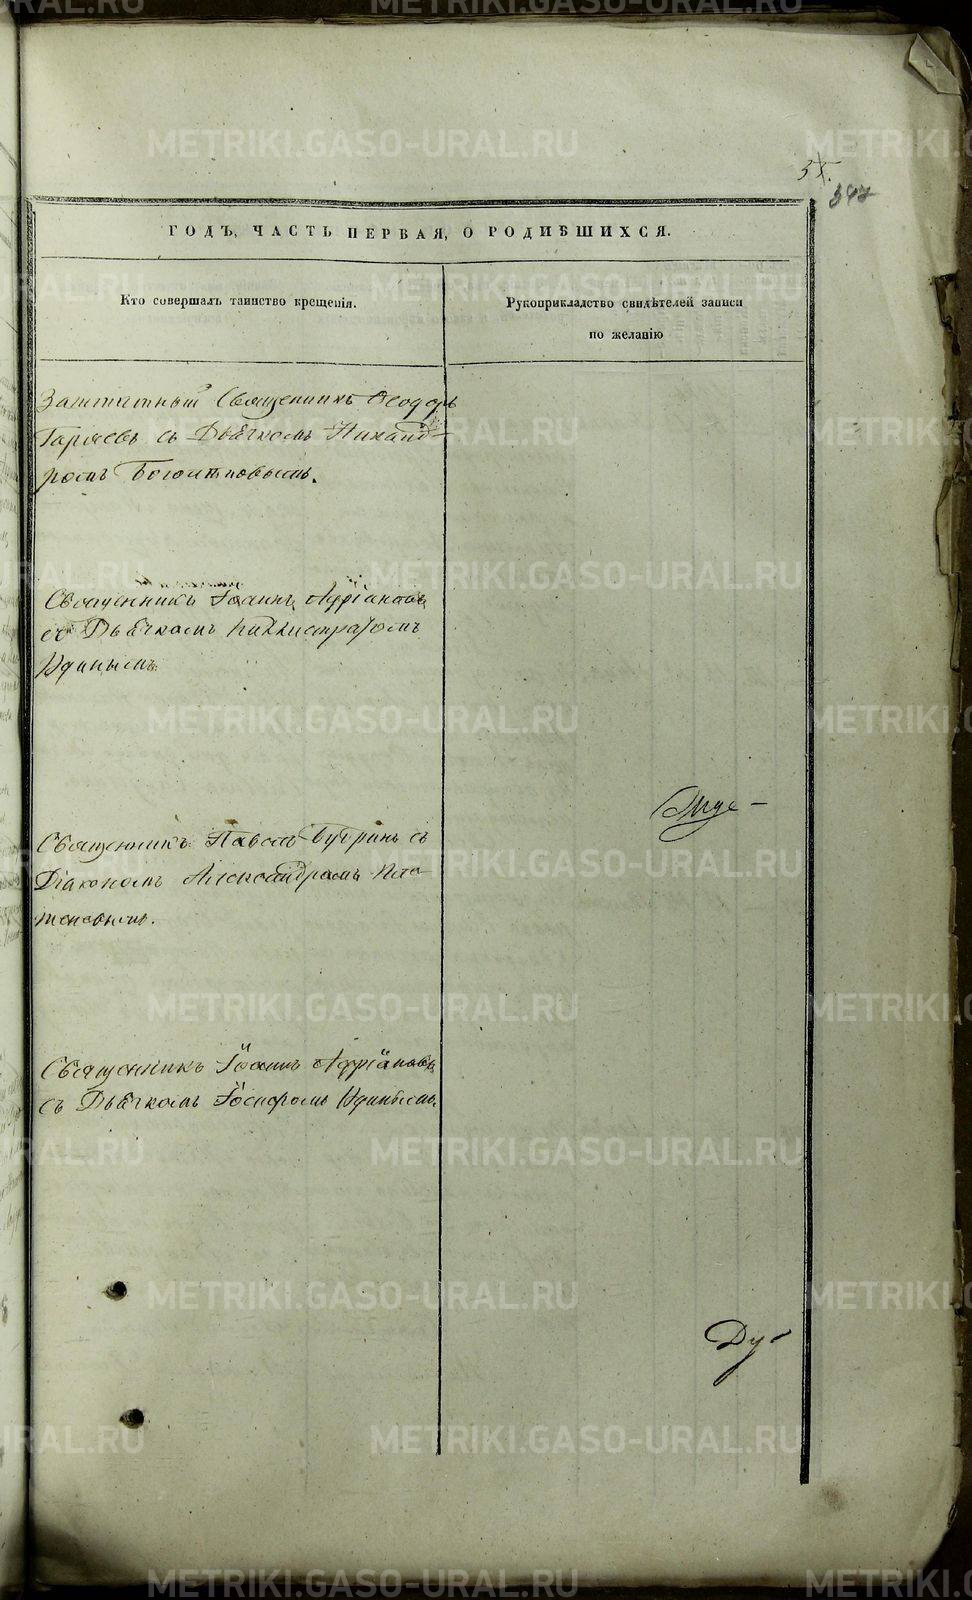 347
ГОДЪ, ЧАСТЬ ПЕРВАЯ, О РОДИВШИХСЯ.
Кто совершалъ таинство крещенія.
Рукоприкладство свидѣтелей записи
по желанію
Заштатный Священникъ Ѳеодоръ
Гаряевъ съ Дьячкомъ Никанд-
ромъ Боголѣповымъ.
Священникъ Іоаннъ Адріановъ
съ Дьячкомъ Каллистратомъ
Удинымъ.
Священникъ Павелъ Бутринъ съ
Діакономъ Александромъ
Священникъ Іоаннъ Адріановъ
съ Дьячкомъ Іосифомъ Удинымъ.
METRIKI.GASO-URAL.RU